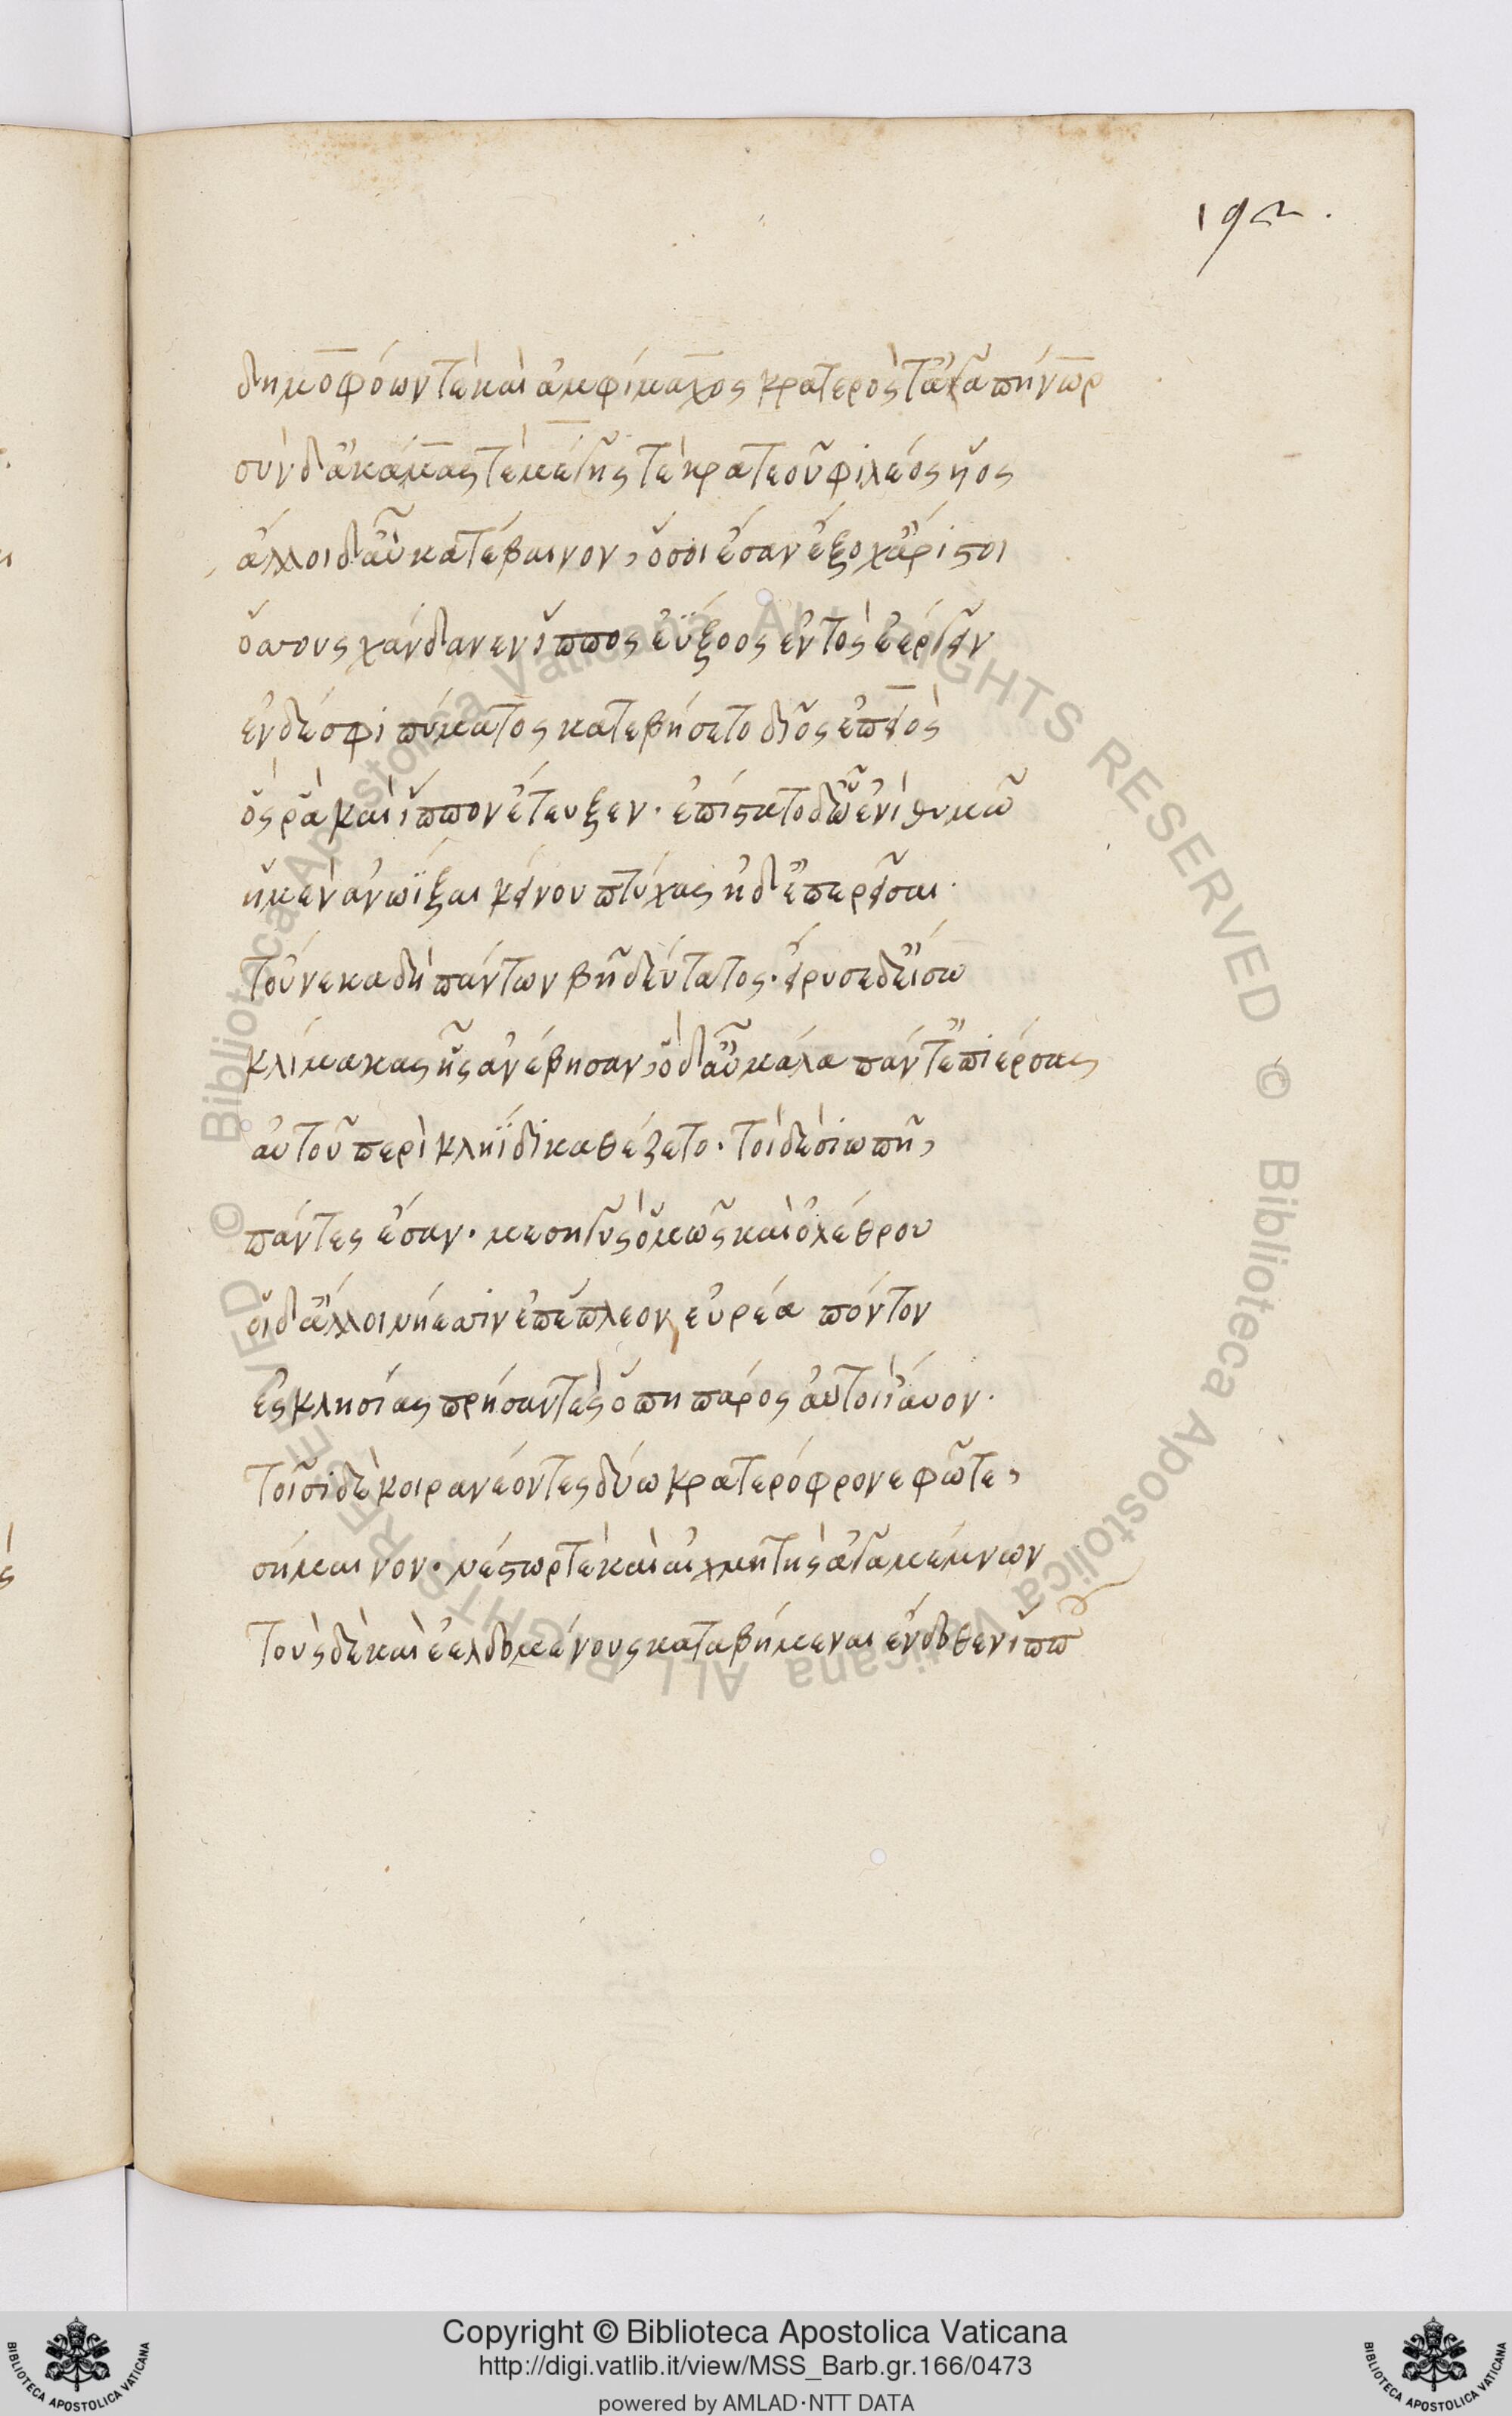 192.
δημοφόων τὲ καὶ ἀμφίμαχος κρατερός τ' ἀγαπήνωρ
σὺν δ' ἀκάμας τὲ μέγης τὲ κρατεοῦ φυλέος υἷος
ἄλλοι δ' αὖ κατέβαινον, ὅσοι ἔσαν ἔξοχ' ἄριστοι
ὅσσους χάνδανεν ἵππος ἐΰξοος ἐντὸς ἐέργειν
ἐν δέ σφι πύματος κατεβήσετο δῖος ἐπειὸς
ὅς ῥα καὶ ἵππον ἔτευξεν. ἐπίστατο δ' ᾧ ἐνὶ θυμῶ
ἠμὲν ἀνωΐξαι κείνου πτύχας ἠδ' ἐπερεῖσαι.
τοὔνεκα δὴ πάντων βῆ δεύτατος. εἴρυσε δ' εἴσω
κλίμακας ᾗς ἀνέβησαν, ὁ δ' αὖ μάλα πάντ' ἐπιέρσας
αὐτοῦ περὶ κληΐδι καθέζετο. τοὶ δὲ σιωπῆ,
πάντες ἔσαν. μεσηγὺς ὁμῶς καὶ ὀλέθρου
οἱ δ' ἄλλοι νήεσσιν ἐπέπλεον εὐρέα πόντον
ἐς κλησίας πρήσαντες ὅπη πάρος αὐτοὶ ἴαυον.
τοῖσι δὲ κοιρανέοντες δύω κρατερόφρονε φῶτε,
σήμαινον. νέστωρ τὲ καὶ αἰχμητὴς ἀγαμέμνων
τοὺς δὲ καὶ ἐελδομένους καταβήμεναι ἔνδοθεν ἵππω
Copyright © Biblioteca Apostolica Vaticana
http://digi.vatlib.it/view/MSS_Barb.gr.166/0473
powered by AMLAD·NTT DATA